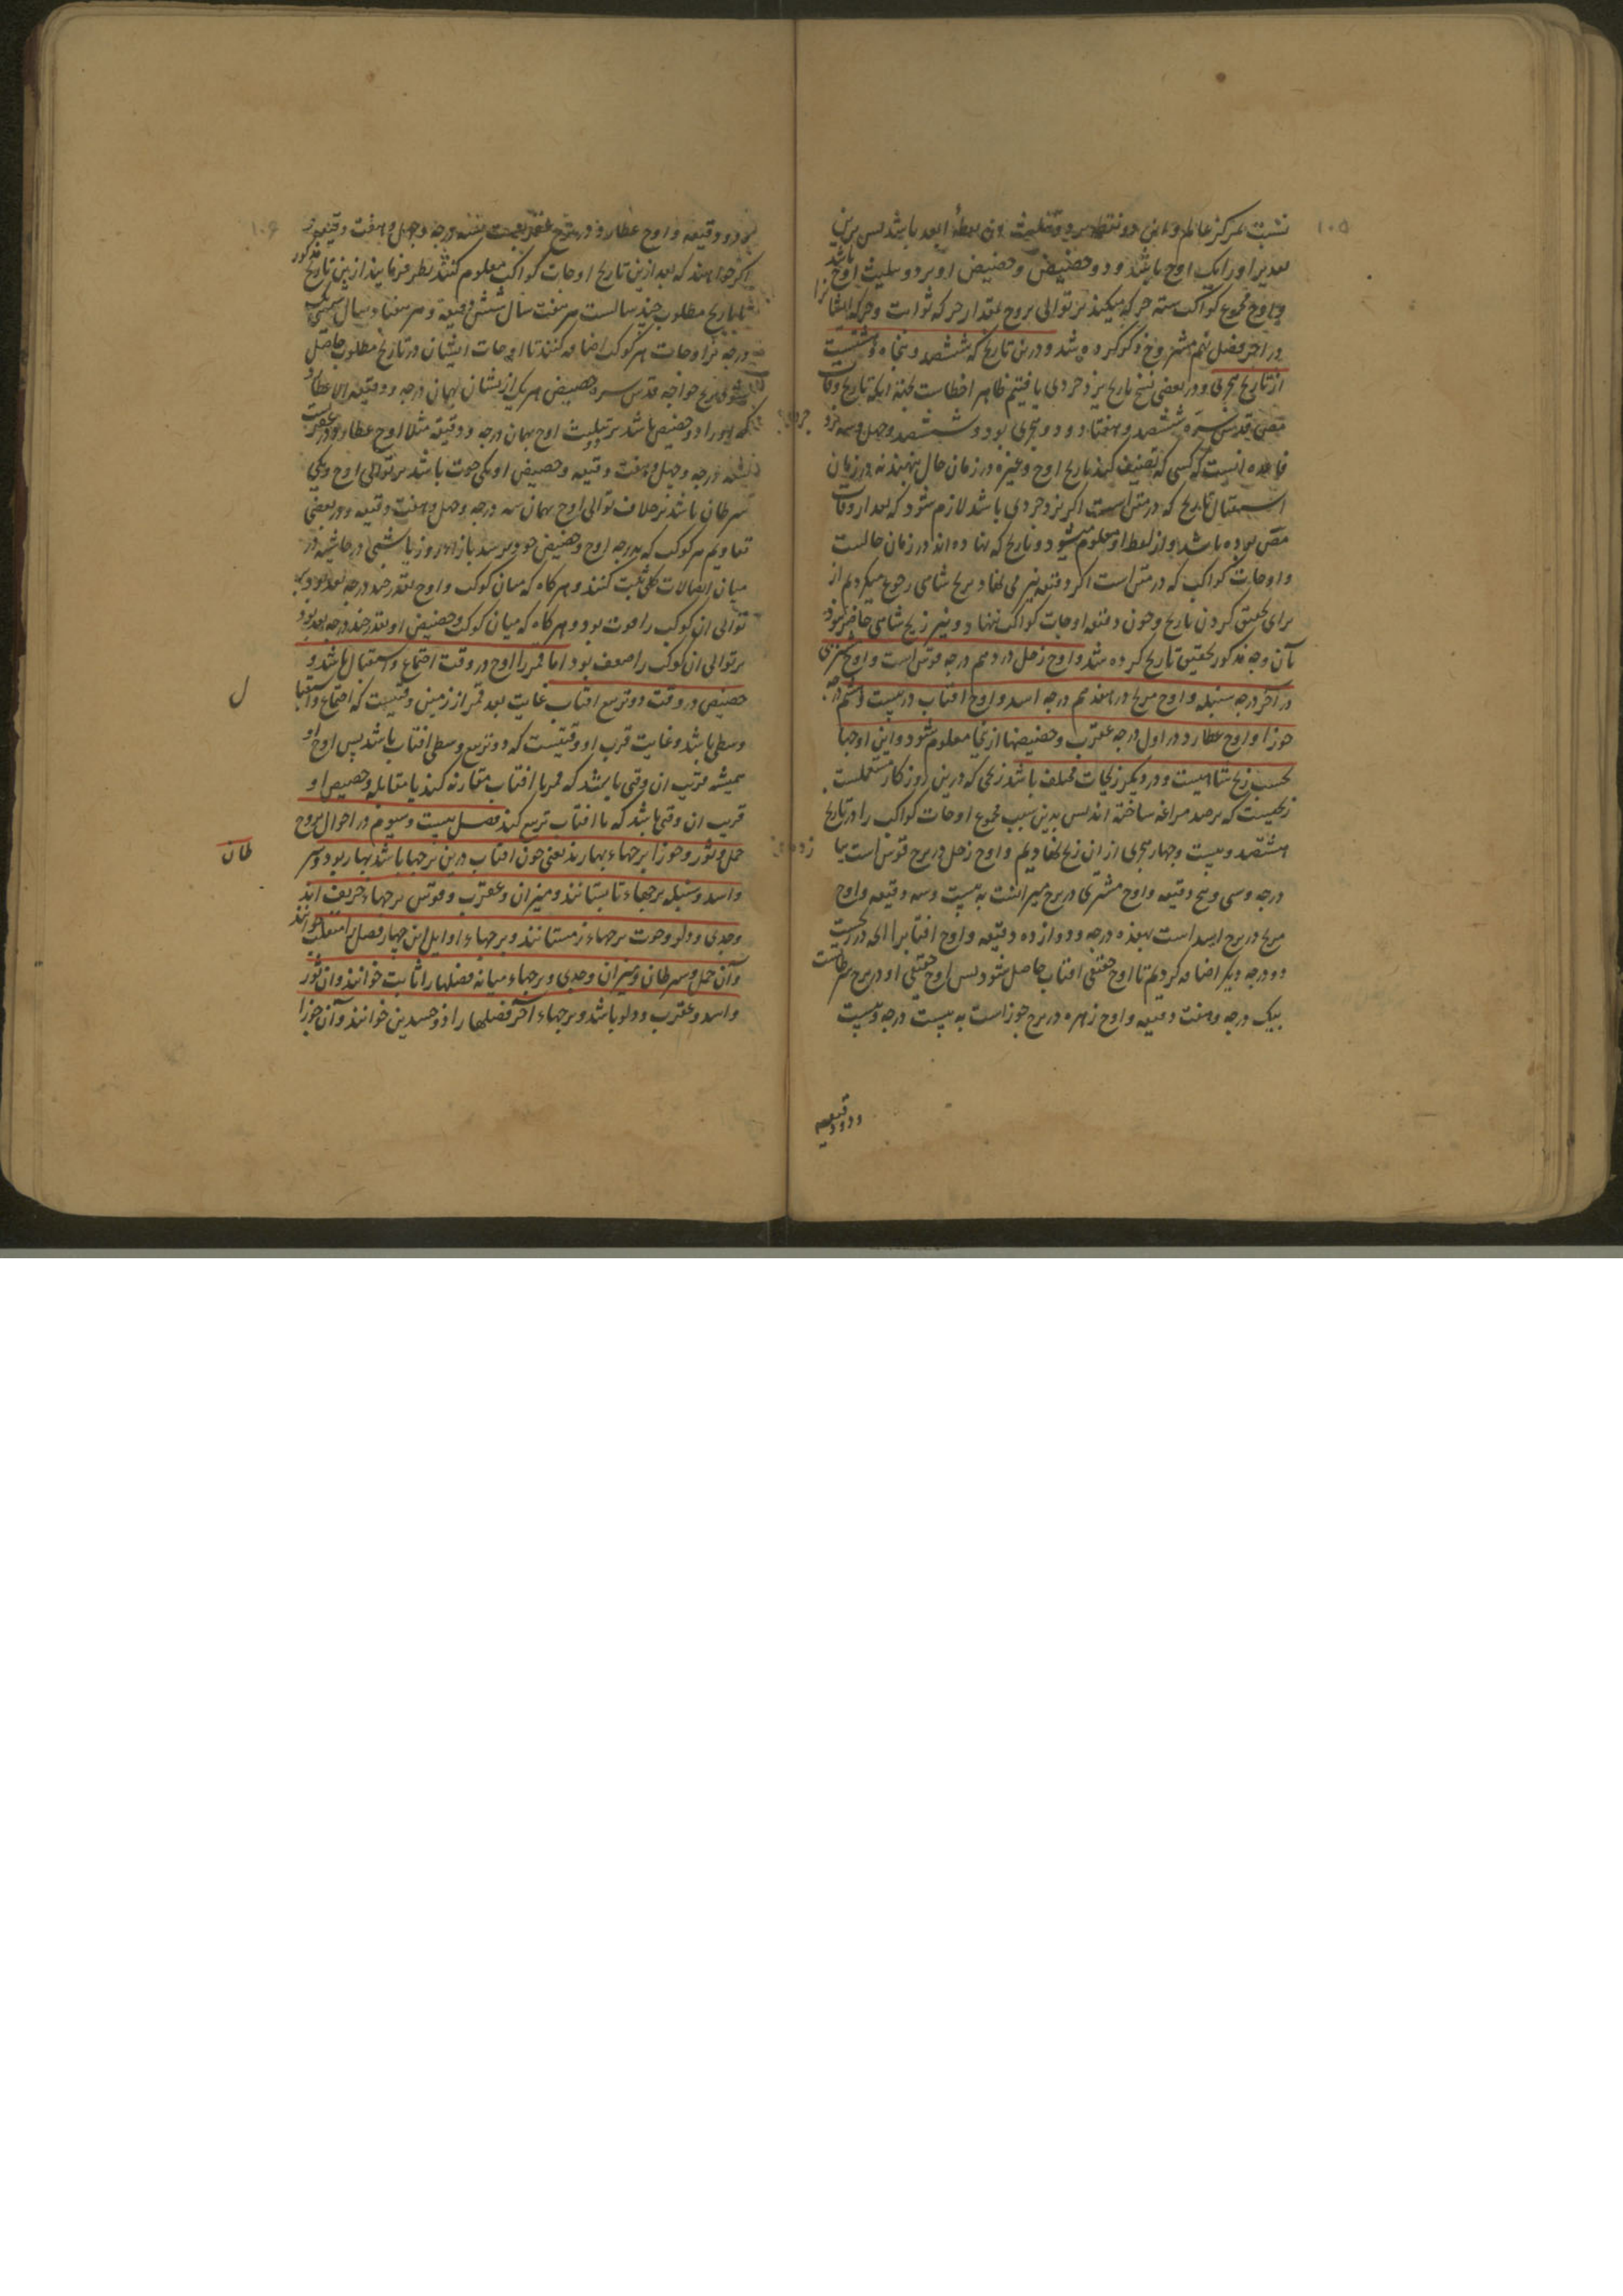 ۱۰۵
نسبت بمرکز عالم و این دو نقطه بر دو تثلیث ابعد باشد پس برین
بعد بر او را یک اوج باشد و دو حضیض و حضیض او بر دو تثلیث اوج باشد
و اوج مجموع کواکب سته حرکه میکند بر توالی بروج بمقدار حرکه ثوابت و حرکه ایشانرا
در اخر فصل نهم مشروح ذکر کرده شد و درین تاریخ که ششصد و پنجاه و هشتست
از تاریخ هجری و در بعضی نسخ تاریخ یزدجردی یافتیم ظاهرا خطاست بجهة آنکه تاریخ وفات
مص قدس سره ششصد و هفتاد و دو هجری بود و ششصد و چهل و سه یزد
جردی
قاعده انیست که کسی که تصنیف کند تاریخ اوج و غیره در زمان حال نهند نه در زمان
استقبال تاریخ که در متن است اگر یزدجردی باشد لازم شود که بعد از وفات
مص بوده باشد و از لفظ او معلوم میشود و تاریخ که نهاده اند در زمان حالست
و اوجات کواکب که در متن است اگر دقیقه نیز می نهاد بزیج شاهی رجوع میکردیم از
برای تحقیق کردن تاریخ و چون دقیقه اوجات کواکب ننهاد و نیز زیج شاهی حاضر نبود
بآن وجه مذکور تحقیق تاریخ کرده شد و اوج زحل در دهم درجه قوس است و اوج مشتری
در آخر درجه سنبله و اوج مریخ در هفدهم درجه اسد و اوج افتاب در بیست و هشتم درجه
جوزا و اوج عطارد در اول درجه عقرب و حضیضها ازینجا معلوم شود و این اوجها
بحسب زیج شاهیست و در دیگر زیجات مختلف باشد زیجی که درین روزکار مستعملست
زیجیست که برصد مراغه ساخته اند پس بدین سبب مجموع اوجات کواکب را در تاریخ
هشتصد و بیست و چهار هجری از ان زیج نهادیم و اوج زحل در برج قوس است بیا
زده
درجه و سی و پنج دقیقه و اوج مشتری در برج میزانست به بیست و سه دقیقه و اوج
مریخ در برج اسد است بهفده درجه و دوازده دقیقه و اوج افتاب را
دو درجه دیگر اضافه کردیم تا اوج حقیقی افتاب حاصل شود پس اوج حقیقی او در برج سرطانست
بیک درجه و هفت دقیقه و اوج زهره در برج جوزاست به بیست درجه و بیست
و دو دقیقه
۱۰۶
و دو دقیقه و اوج عطارد در برج عقربست بسه درجه و چهل و هفت دقیقه
اگر خواهند که بعد ازین تاریخ اوجات کواکب معلوم کنند نظر فرمایند از ین تاریخ مذکور
تا تاریخ مطلوب چند سالست هر هفت سال شش دقیقه و هر هفتاد سال یک
درجه بر اوجات هر کوکب اضافه کنند تا اوجات ایشان در تاریخ مطلوب حاصل
شود خواجه قدس سره حضیض هر یک از یشان بهمان درجه و دقیقه الا عطارد
که او را دو حضیض باشد بر تثلیث اوج بهمان درجه و دقیقه مثلا اوج عطارد در عقربست
بسه درجه و چهل و هفت دقیقه و حضیض او یکی حوت باشد بر توالی اوج و یکی
سرطان باشد بر خلاف توالی اوج بهمان سه درجه و چهل و هفت دقیقه و در بعضی
تقاویم هر کوکب که بدرجه اوج و حضیض خود برسد بازاء روز یا شبی در حاشیه در
میان اتصالات کلی ثبت کنند و هر کاه که میان کوکب و اوج بقدر چند درجه بعد بود بر
توالی ان کوکب را قوت بود و هر کاه که میان کوکب و حضیض او بقدر چند درجه بعد بود
بر توالی ان کوکب را ضعف بود اما قمر را اوج در وقت اجتماع و استقبال باشد و
حضیض در وقت دو تربیع افتاب غایت بعد قمر از زمین وقتیست که اجتماع و استقبا
ل
وسطی باشد و غایت قرب او وقتیست که دو تربیع وسطی افتاب باشد پس اوج او
همیشه قریب ان وقتی باشد که قمر با افتاب مقارنه کند یا مقابله و حضیض او
قریب ان وقتی باشد که با افتاب تربیع کند فصل بیست و سیوم در احوال بروج
حمل و ثور و جوزا برجهاء بهارند یعنی چون افتاب درین برجها باشد بهار بود و سر
طان
و اسد و سنبله برجهاء تابستانند و میزان و عقرب و قوس برجهاء خریف اند
و جدی و دلو و حوت برجهاء زمستانند و برجهاء اوایل این چهار فصل را منقلب خوانند
و آن حمل و سرطان و میزان و جدی و برجهاء میانه فصلها را ثابت خوانند و ان ثور
و اسد و عقرب و دلو باشد و برجهاء آخر فصلها را ذو جسدین خوانند و آن جوزا